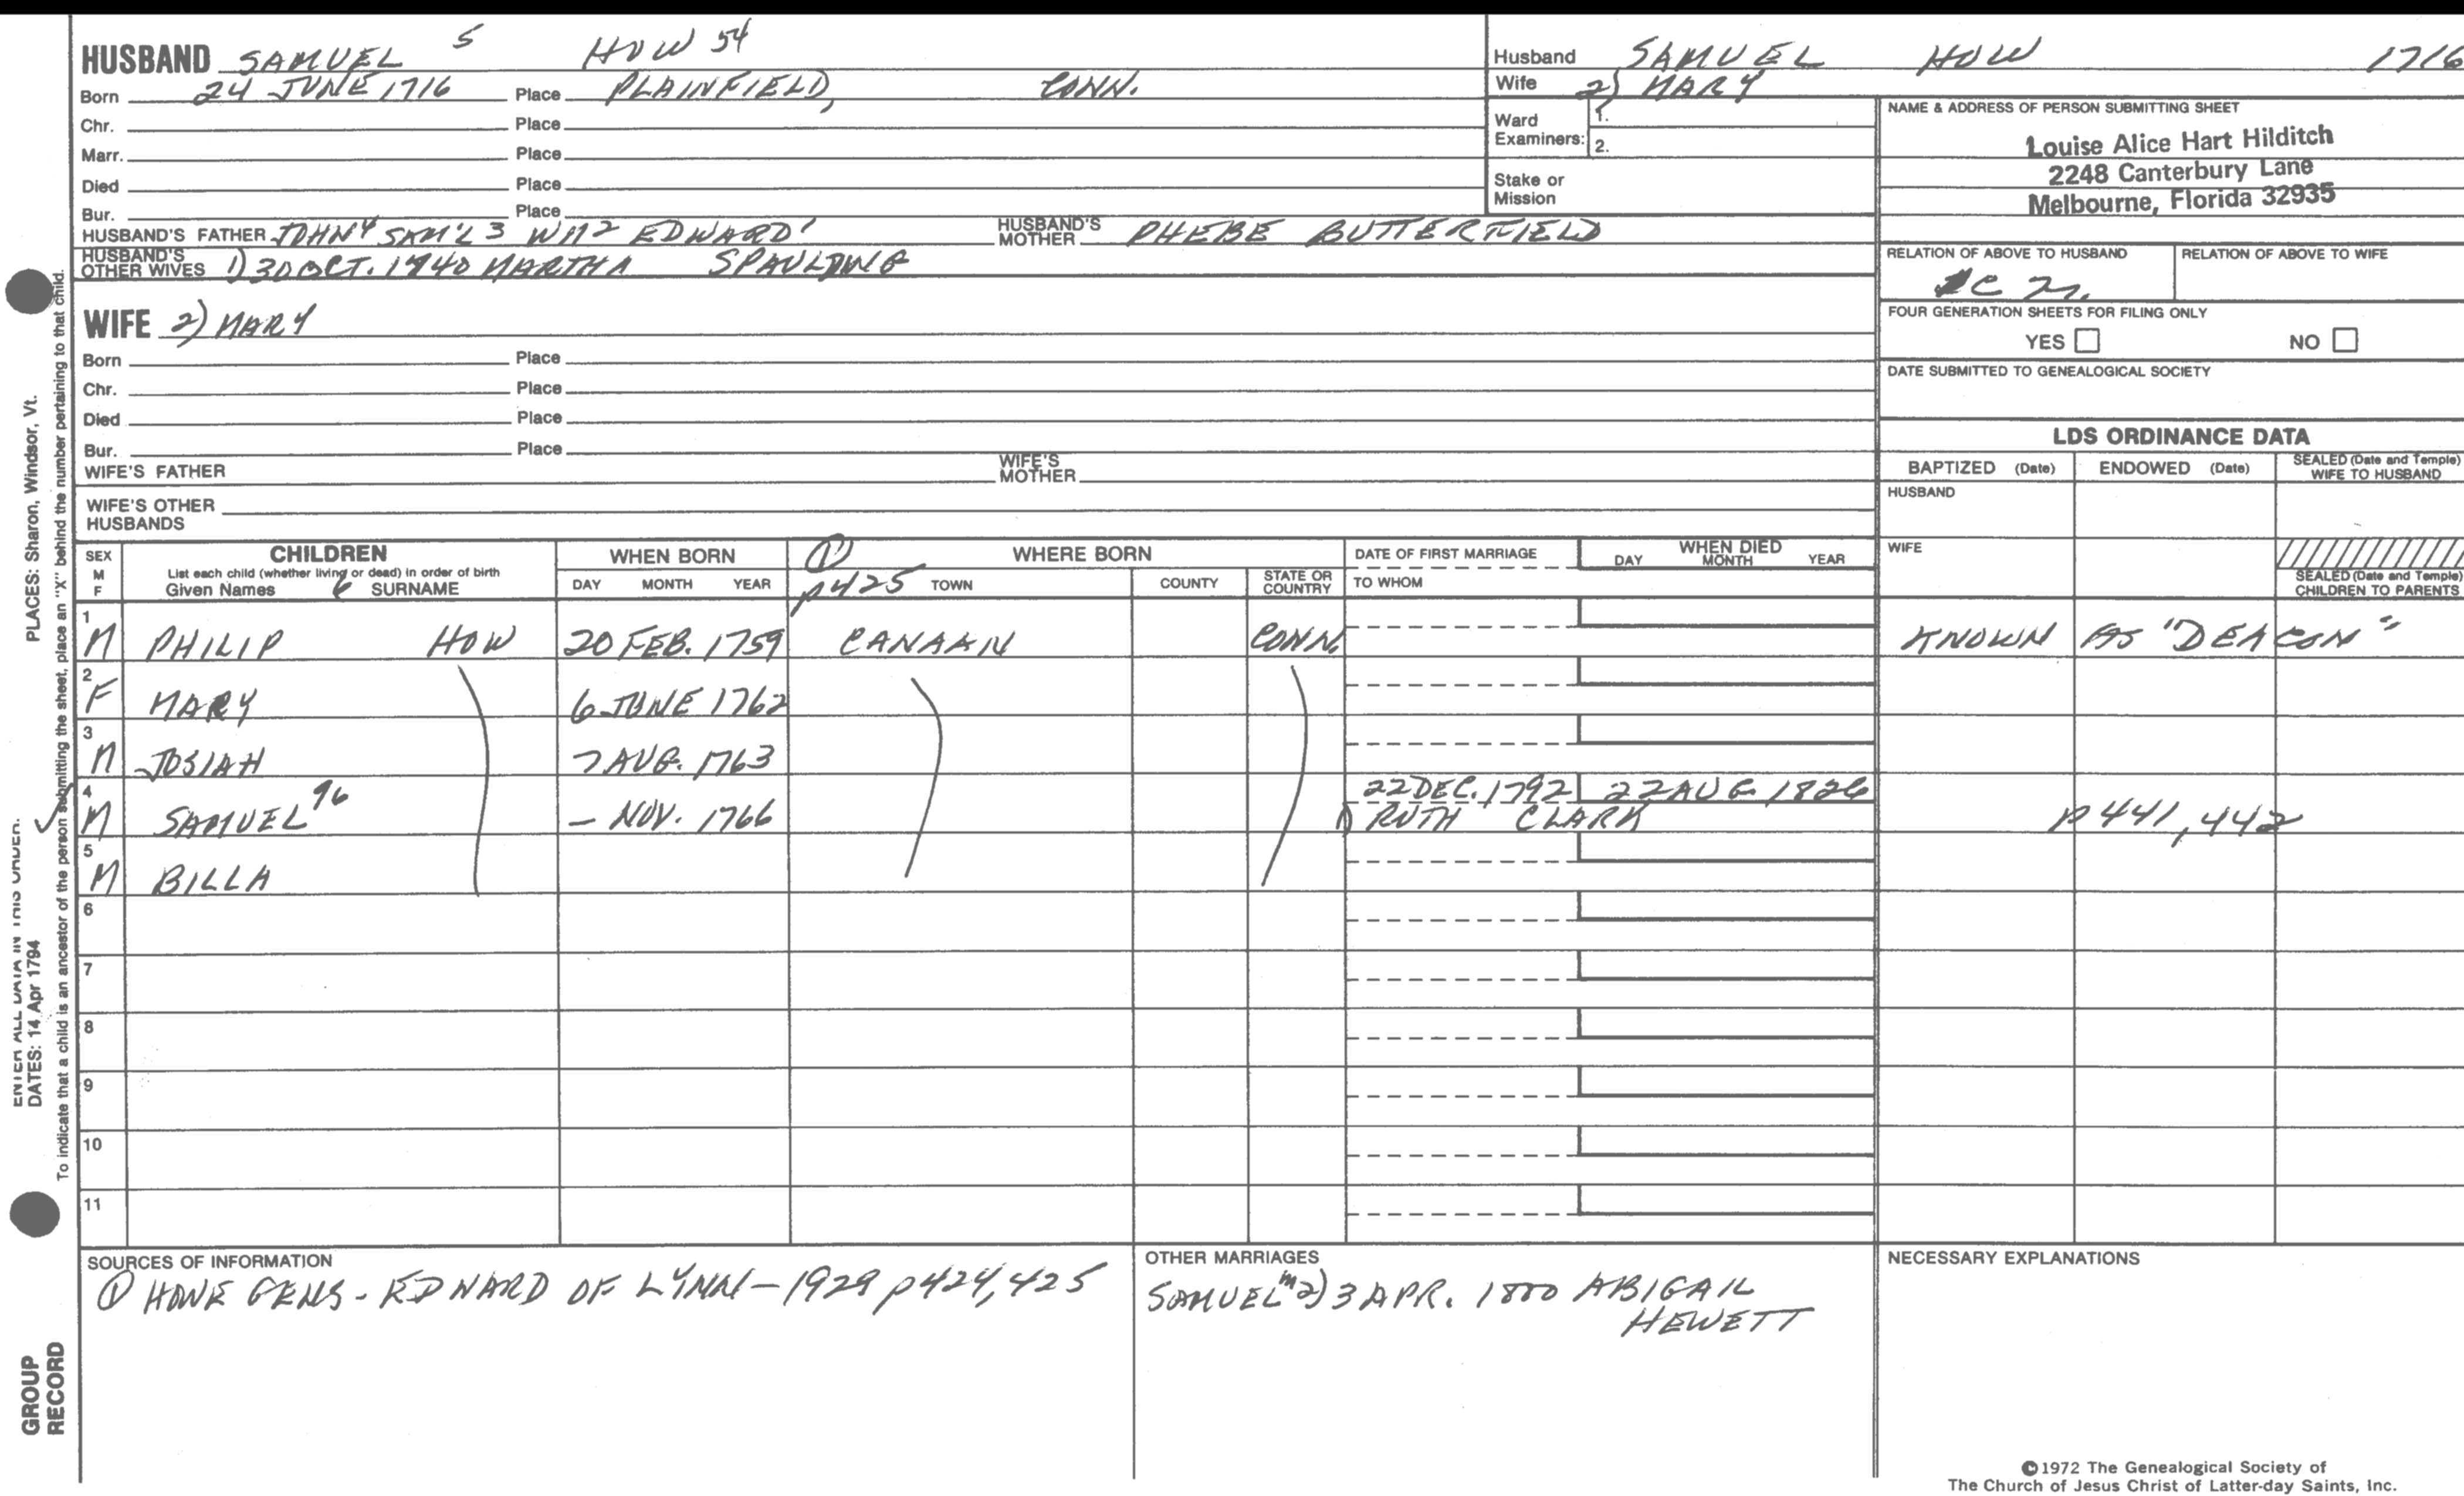 HUSBAND SAMUEL 5 HOW 54
Born 24 JUNE 1716 Place PLAINFIELD, CONN.
Chr. Place
Marr. Place
Died Place
Bur. Place
HUSBAND'S FATHER JOHN 4 SAM'L 3 WM 2 EDWARD 1 HUSBAND'S MOTHER PHEBE BUTTERFIELD
HUSBAND'S OTHER WIVES 1) 30 OCT. 1740 MARTHA SPAULDING
WIFE 2) MARY
Born Place
Chr. Place
Died Place
Bur. Place
WIFE'S FATHER WIFE'S MOTHER
WIFE'S OTHER HUSBANDS
Husband SAMUEL HOW 1716
Wife 2) MARY
Ward Examiners: 1.
2.
Stake or Mission
NAME & ADDRESS OF PERSON SUBMITTING SHEET
Louise Alice Hart Hilditch
2248 Canterbury Lane
Melbourne, Florida 32935
RELATION OF ABOVE TO HUSBAND RELATION OF ABOVE TO WIFE
FOUR GENERATION SHEETS FOR FILING ONLY
YES NO
DATE SUBMITTED TO GENEALOGICAL SOCIETY
LDS ORDINANCE DATA
BAPTIZED (Date) ENDOWED (Date) SEALED (Date and Temple) WIFE TO HUSBAND
HUSBAND
WIFE
SEALED (Date and Temple) CHILDREN TO PARENTS
SEX M F
CHILDREN
List each child (whether living or dead) in order of birth
Given Names 6 SURNAME
WHEN BORN
DAY MONTH YEAR
① p425
WHERE BORN
TOWN COUNTY STATE OR COUNTRY
DATE OF FIRST MARRIAGE
TO WHOM
WHEN DIED
DAY MONTH YEAR
1 M PHILIP HOW 20 FEB. 1759 CANAAN CONN. KNOWN AS "DEACON"
2 F MARY 6 JUNE 1762
3 M JOSIAH 7 AUG. 1763
4 M SAMUEL 96 – NOV. 1766 22 DEC. 1792 22 AUG 1826
1) RUTH CLARK p441,442
5 M BILLA
6
7
8
9
10
11
SOURCES OF INFORMATION
① HOWE GENS - EDWARD OF LYNN - 1929 p424,425
OTHER MARRIAGES
SAMUEL m 2) 3 APR. 1800 ABIGAIL
HEWETT
NECESSARY EXPLANATIONS
©1972 The Genealogical Society of
The Church of Jesus Christ of Latter-day Saints, Inc.
PLACES: Sharon, Windsor, Vt.
ENTER ALL DATA IN THIS ORDER:
DATES: 14 Apr 1794
To indicate that a child is an ancestor of the person submitting the sheet, place an "X" behind the number pertaining to that child.
GROUP
RECORD